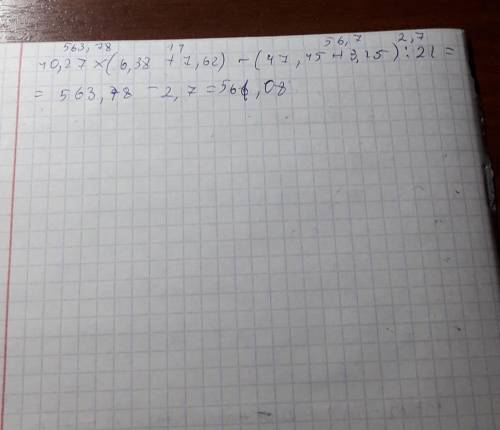 563,78 14 56,7 2,7
40,27 × (6,38 + 7,62) - (47,45 + 9,25) : 21 =
= 563,78 - 2,7 = 561,08